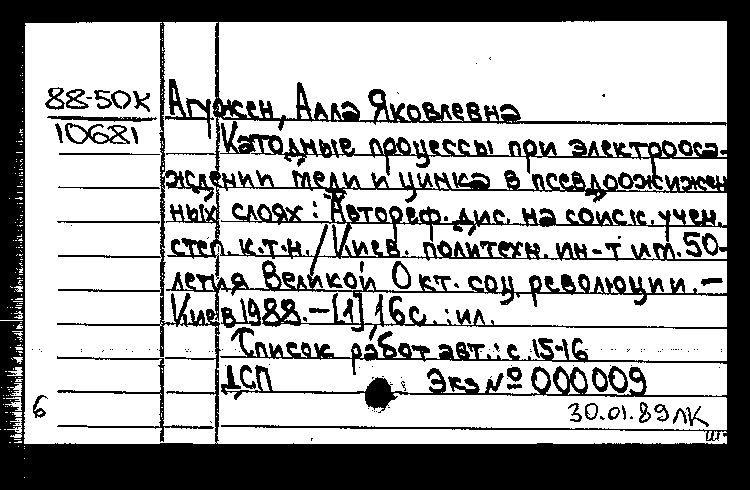 88-50К
10681
Агужен, Алла Яковлевна
Катодные процессы при электрооса-
ждении меди и цинка в псевдоожижен
ных слоях : Автореф. дис. на соиск. учен.
степ. к.т.н. / Киев. политехн. ин-т им. 50-
летия Великой Окт. соц. революции. –
Киев 1988. – [1], 16 с. : ил.
Список работ авт.: с. 15-16
ДСП Экз № 000009
6
30.01.89 ЛК